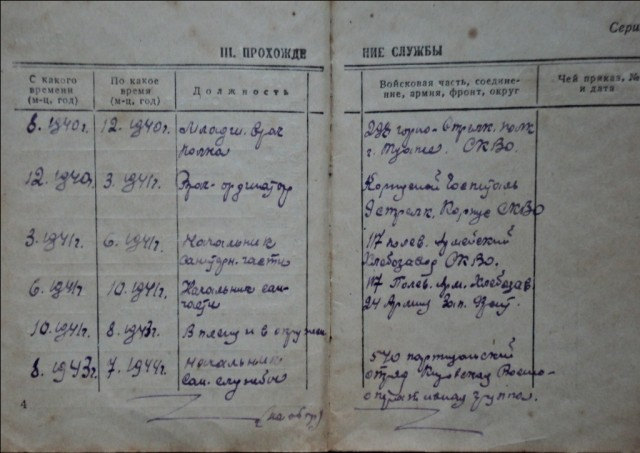 Сери
III. ПРОХОЖДЕ НИЕ СЛУЖБЫ
С какого времени (м-ц, год)
По какое время (м-ц, год)
Должность
Войсковая часть, соедине-
ние, армия, фронт, округ
Чей приказ, №
и дата
8. 1940г. 12. 1940г. Младш. врач
полка
горно-Стрелк. полк
г. СКВО.
12. 1940г. 3. 1941г. Врач-ординатор
Корпусной Госпиталь
Стрелк. Корпус СКВО
3. 1941г. 6. 1941г. Начальник
части
117 полев. Армейский
Хлебозавод СКВО.
6. 1941г. 10. 1941г. Начальник сан-
части
117 Полев. Арм. Хлебозав.
24 Армии Зап. Фронт.
10. 1941г. 8. 1943г. В плену и в
8. 1943г. 7. 1944г. Начальник
сан. службы
540 партизанский
отряд Военно-
группа.
4
(на обор)